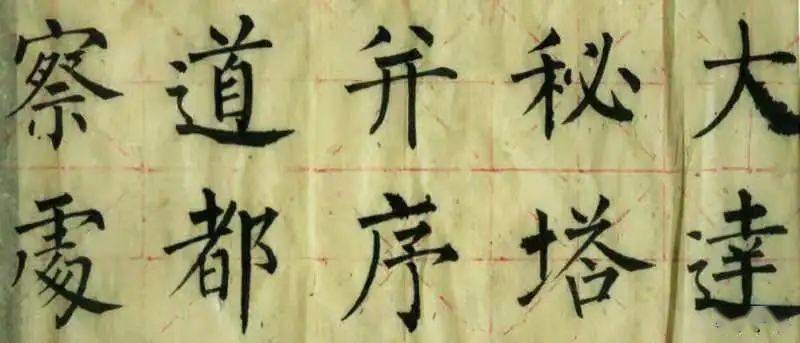 大達
秘塔
并序
道都
察處